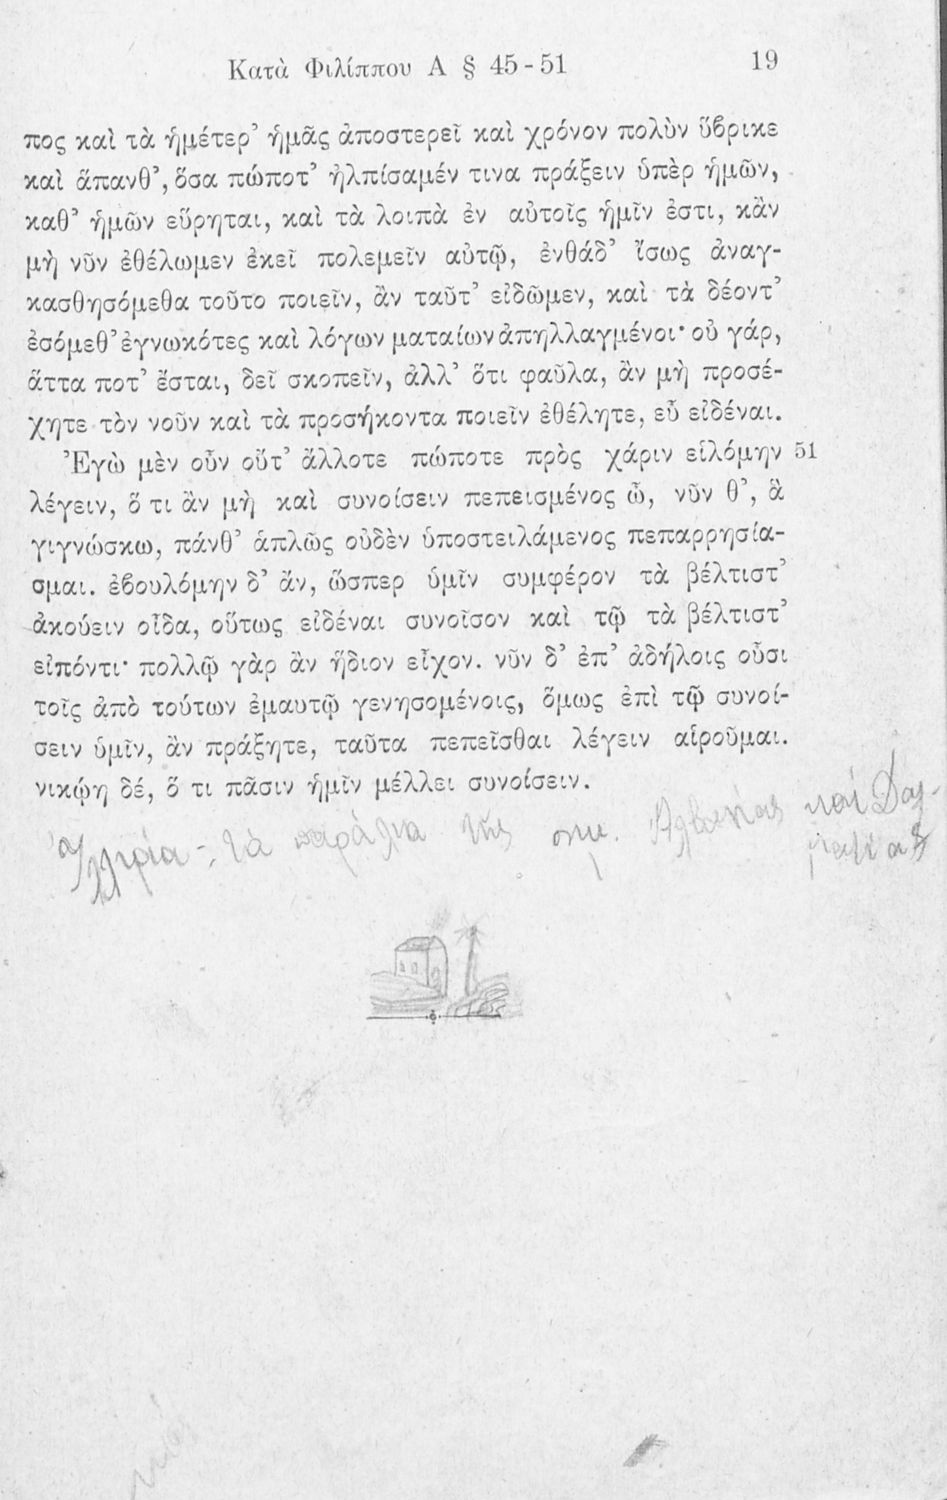 Κατὰ Φιλίππου Α § 45-51 19
πος καὶ τὰ ἡμέτερ’ ἡμᾶς ἀποστερεῖ καὶ χρόνον πολὺν ὕβρικε
καὶ ἅπανθ’, ὅσα πώποτ’ ἠλπίσαμέν τινα πράξειν ὑπὲρ ἡμῶν,
καθ’ ἡμῶν εὕρηται, καὶ τὰ λοιπὰ ἐν αὐτοῖς ἡμῖν ἐστι, κἂν
μὴ νῦν ἐθέλωμεν ἐκεῖ πολεμεῖν αὐτῷ, ἐνθάδ’ ἴσως ἀναγ-
κασθησόμεθα τοῦτο ποιεῖν, ἂν ταῦτ’ εἰδῶμεν, καὶ τὰ δέοντ’
ἐσόμεθ’ ἐγνωκότες καὶ λόγων ματαίων ἀπηλλαγμένοι· οὐ γάρ,
ἅττα ποτ’ ἔσται, δεῖ σκοπεῖν, ἀλλ’ ὅτι φαῦλα, ἂν μὴ προσέ-
χητε τὸν νοῦν καὶ τὰ προσήκοντα ποιεῖν ἐθέλητε, εὖ εἰδέναι.
Ἐγὼ μὲν οὖν οὔτ’ ἄλλοτε πώποτε πρὸς χάριν εἱλόμην 51
λέγειν, ὅ τι ἂν μὴ καὶ συνοίσειν πεπεισμένος ὦ, νῦν θ’, ἃ
γιγνώσκω, πάνθ’ ἁπλῶς οὐδὲν ὑποστειλάμενος πεπαρρησία-
σμαι. ἐβουλόμην δ’ ἄν, ὥσπερ ὑμῖν συμφέρον τὰ βέλτιστ’
ἀκούειν οἶδα, οὕτως εἰδέναι συνοῖσον καὶ τῷ τὰ βέλτιστ’
εἰπόντι· πολλῷ γὰρ ἂν ἥδιον εἶχον. νῦν δ’ ἐπ’ ἀδήλοις οὖσι
τοῖς ἀπὸ τούτων ἐμαυτῷ γενησομένοις, ὅμως ἐπὶ τῷ συνοί-
σειν ὑμῖν, ἂν πράξητε, ταῦτα πεπεῖσθαι λέγειν αἱροῦμαι.
νικῴη δέ, ὅ τι πᾶσιν ἡμῖν μέλλει συνοίσειν.
τὰ παράλια τῆς σημ. Ἀλβανίας καί Δαλ-
ματίας